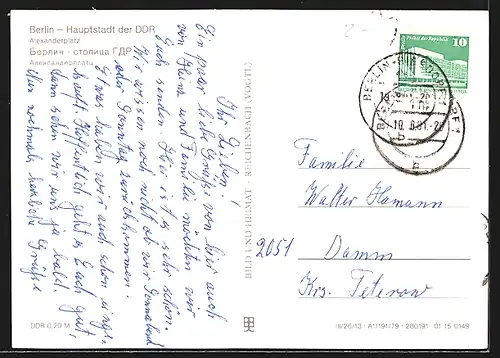 Berlin – Hauptstadt der DDR
Alexanderplatz
Берлин · столица ГДР
Александерплатц
Ihr Lieben!
Ein paar liebe Grüße von hier auch
von Heinz und Familie möchten wir
Euch senden. Hier ist es sehr schön.
Wir wissen noch nicht ob wir Sonnabend
oder Sonntag zurückkommen.
Etwas haben wir auch schon eingekauft. Hoffentlich geht es Euch gut,
dann sehen wir uns ja bald.
Nun nochmals herzliche Grüße
BILD UND HEIMAT · REICHENBACH (VOGTL)
Palast der Republik
10
BERLIN
Familie
Walter Hamann
2051 Damm
Krs. Teterow
DDR 0,20 M
III/26/13 · A1/19N/79 · 280191 01 15 0149